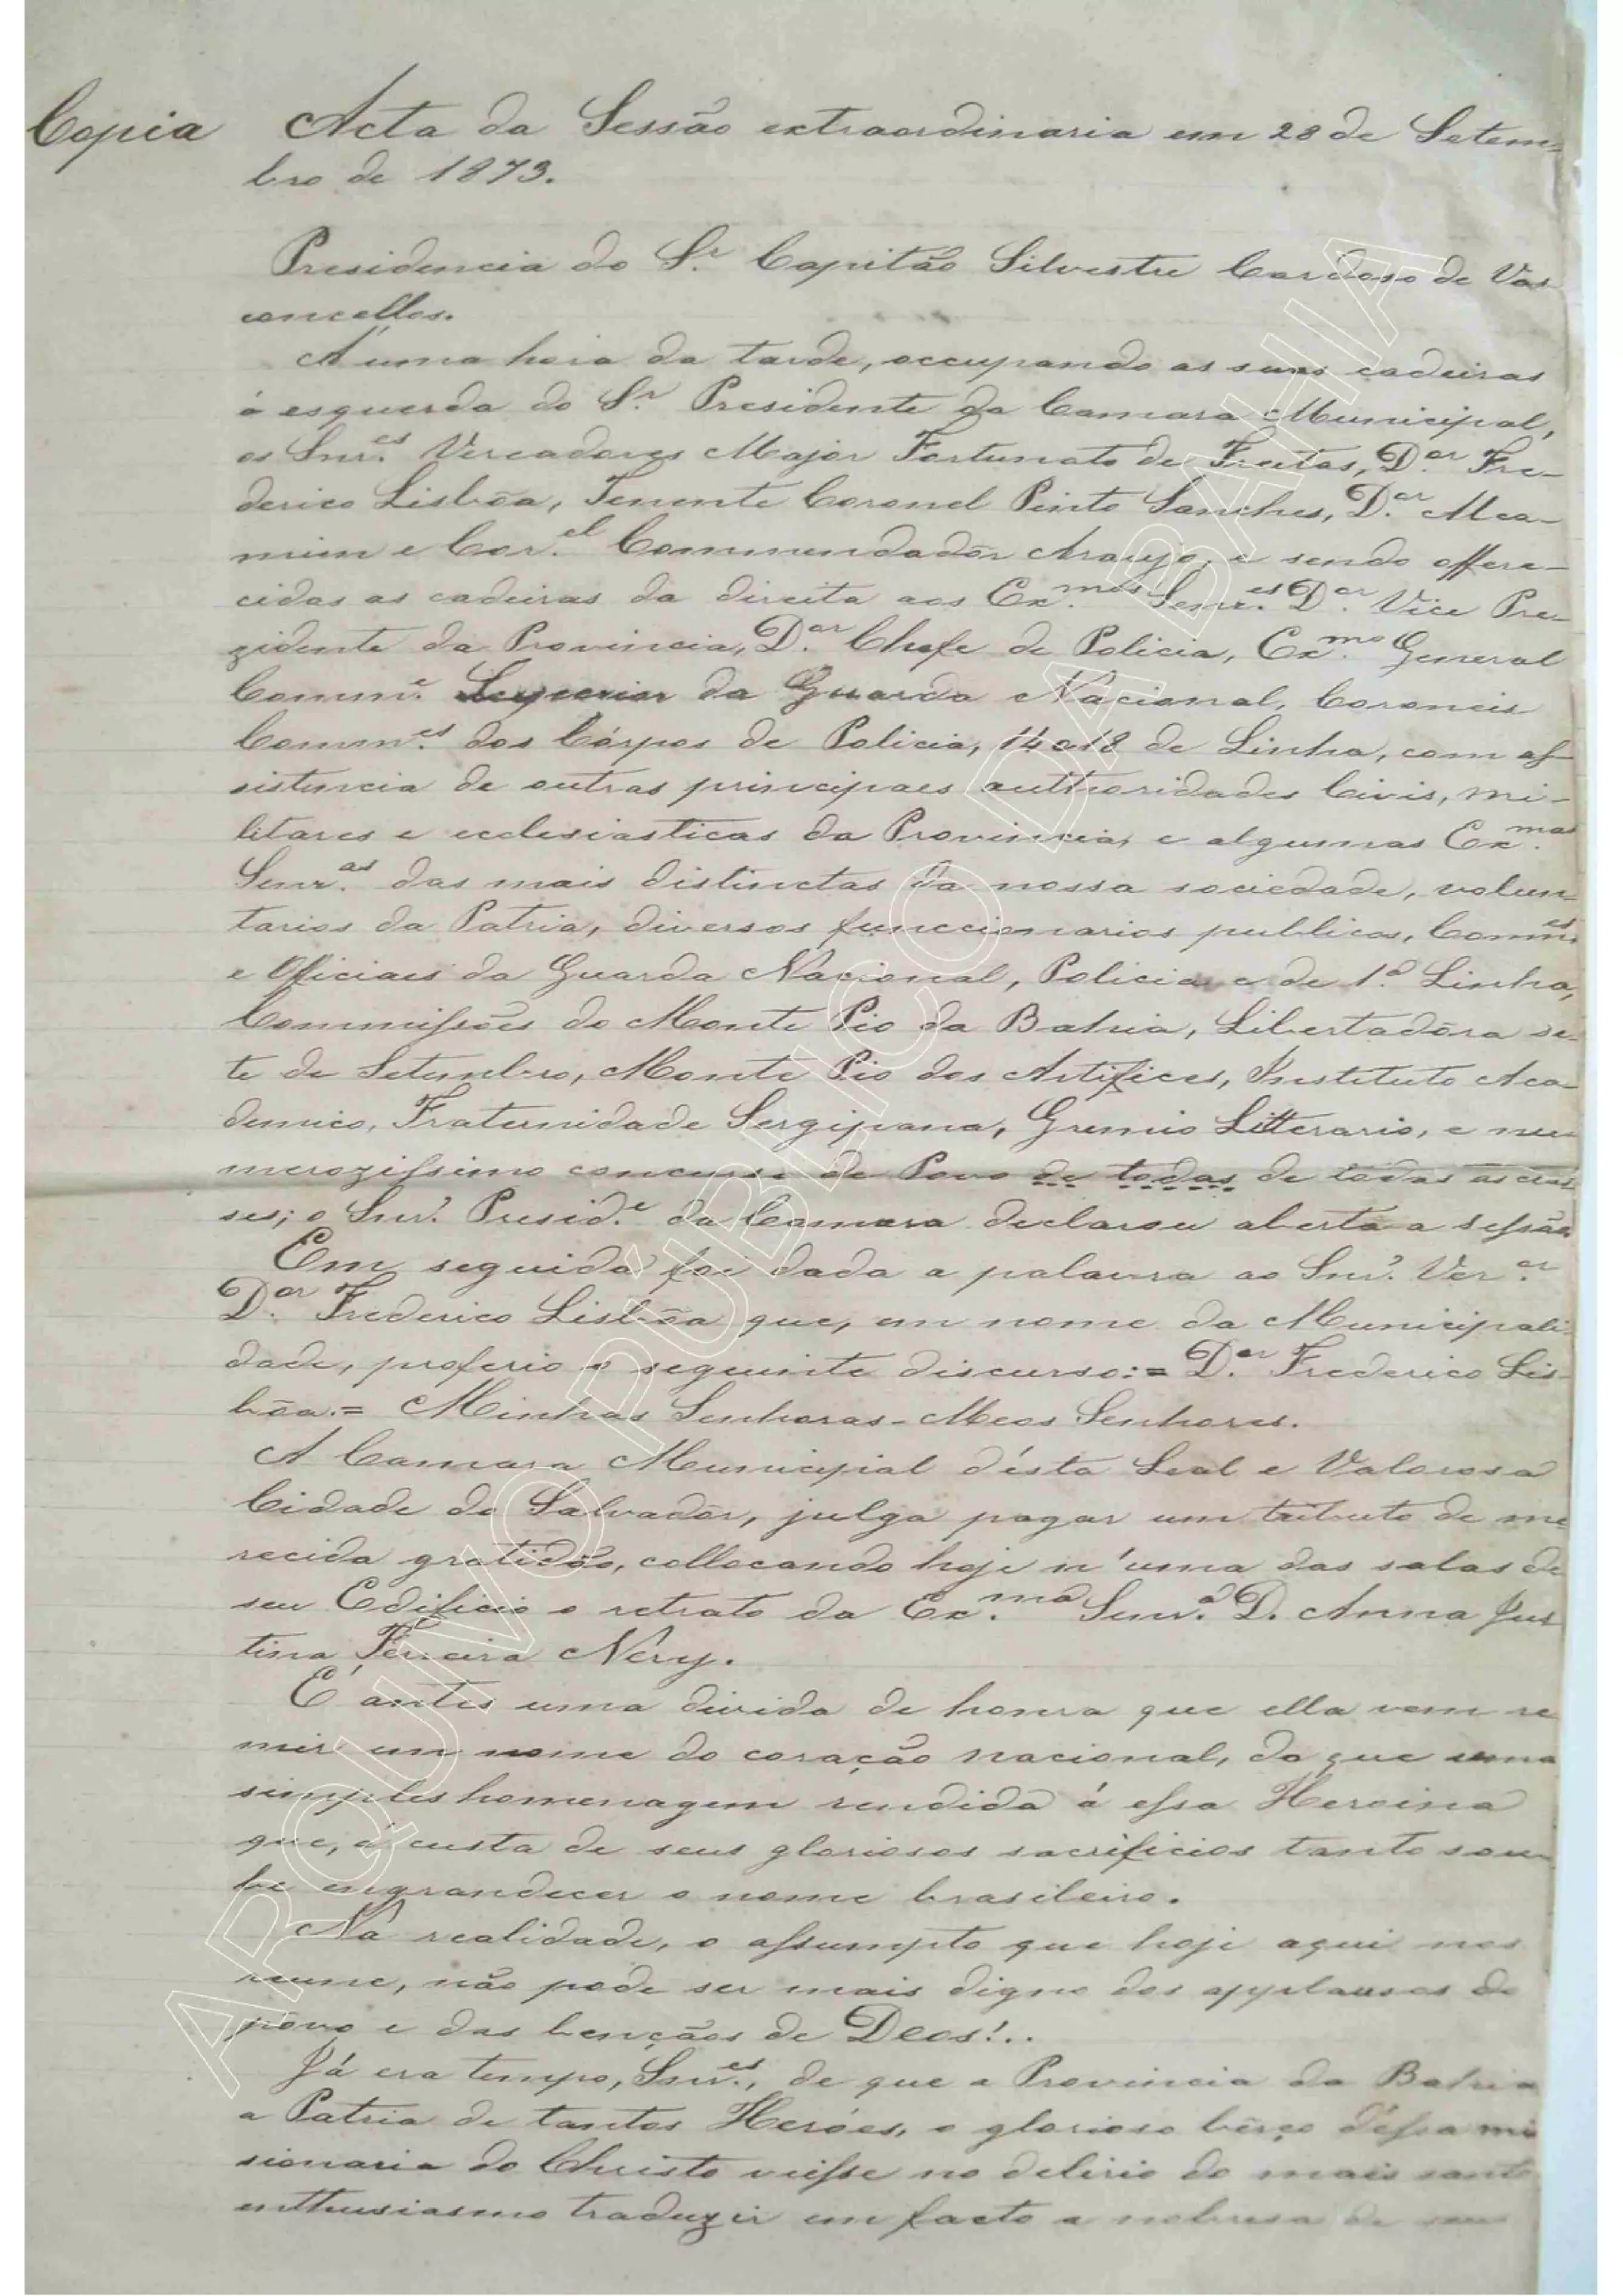 Copia
Acta da Sessão extraordinaria em 28 de Setem-
bro de 1873.
Presidencia do Sr. Capitão Silvestre Cardoso de Vas-
concellos.
A' uma hora da tarde, occupando as suas cadeiras
á esquerda do Sr. Presidente da Camara Municipal,
os Snres. Vereadores Major Fortunato de Freitas, Dor. Fre-
derico Lisbôa, Tenente Coronel Pinto Sanches, Dor. Mea-
mim e Corel. Commendadôr Araujo, e sendo offere-
cidas as cadeiras da direita aos Exmos. Senres. Dor. Vice Pre-
zidente da Provincia, Dor. Chefe de Policia, Exmo. General
Comme. Superior da Guarda Nacional, Coroneis
Commes. dos Córpos de Policia, 14 e 18 de Linha, com as-
sistencia de outras principaes authoridades Civis, mi-
litares e ecclesiasticas da Provincia, e algumas Exmas.
Senras. das mais distinctas da nossa sociedade, volun-
tarios da Patria, diversos funccionarios publicos, Commes.
e Officiais da Guarda Nacional, Policia e de 1a. Linha,
Commissões do Monte Pio da Bahia, Libertadôra se-
te de Setembro, Monte Pio dos Artifices, Instituto Aca-
demico, Fraternidade Sergipana, Gremio Litterario, e nu-
merozissimo concurso de Povo de todas de todas as clas-
ses; o Snr. Preside. da Camara declarou aberta a sessão.
Em seguida foi dada a palavra ao Snr. Veror.
Dor. Frederico Lisbôa que, em nome da Municipali-
dade, proferio o seguinte discurso:= Dor. Frederico Lis-
bôa.= Minhas Senhoras - Meos Senhores.
A Camara Municipial d'ésta Leal e Valorosa
Cidade do Salvadôr, julga pagar um tributo de me-
recida gratidão, collocando hoje n'uma das salas de
seu Edificio o retrato da Exma. Snra. D. Anna Jus-
tina Ferreira Nery.
E' antes uma divida de honra que ella vem re-
mir em nome do coração nacional, do que uma
simples homenagem rendida á essa Heroina
que, á custa de seus gloriosos sacrificios tanto sou-
be engrandecer o nome brasileiro.
Na realidade, o assumpto que hoje aqui nos
reune, não pode ser mais digno dos applausos do
pôvo e das bençãos de Deos!..
Já era tempo, Snres., de que a Provincia da Bahia
a Patria de tantos Heróes, o glorioso bêrço déssa mis-
sionaria do Christo viesse no delirio do mais santo
enthusiasmo traduzir em facto a nobresa de seus
ARQUIVO PÚBLICO DA BAHIA